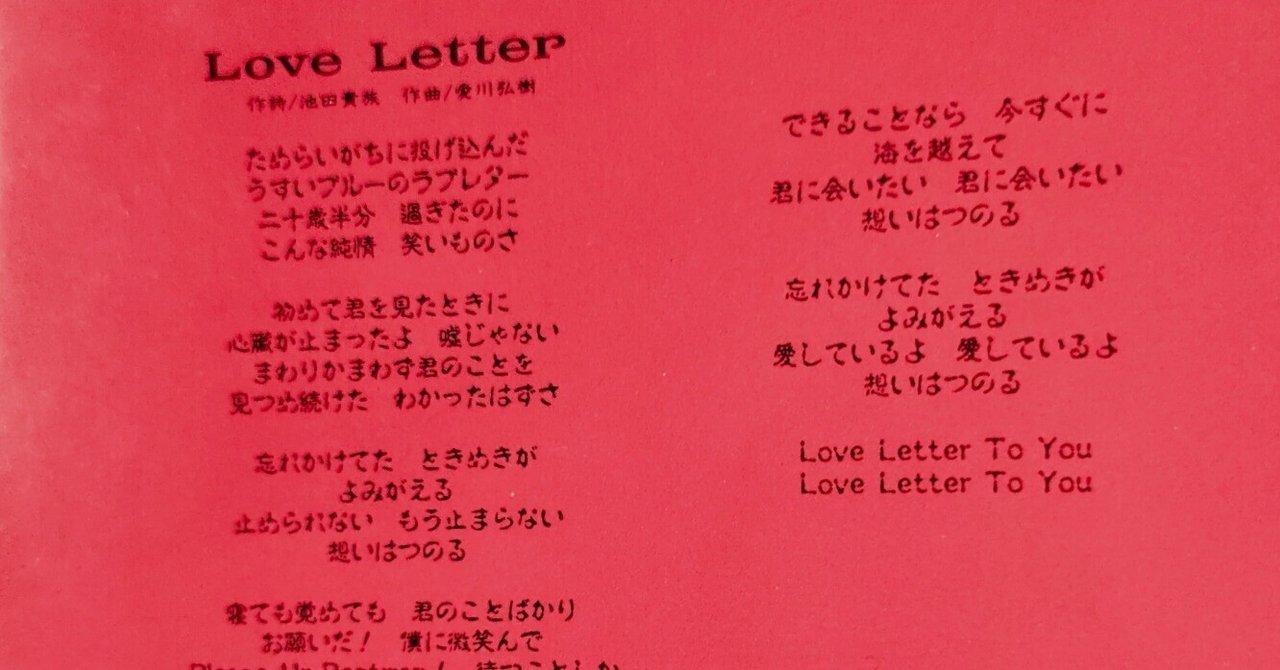 Love Letter
作詩/池田貴族　作曲/愛川弘樹
ためらいがちに投げ込んだ
うすいブルーのラブレター
二十歳半分　過ぎたのに
こんな純情　笑いものさ
初めて君を見たときに
心臓が止まったよ　嘘じゃない
まわりかまわず君のことを
見つめ続けた　わかったはずさ
忘れかけてた　ときめきが
よみがえる
止められない　もう止まらない
想いはつのる
寝ても覚めても　君のことばかり
お願いだ！　僕に微笑んで
Please Mr.Postman！　待つことしか
できることなら　今すぐに
海を越えて
君に会いたい　君に会いたい
想いはつのる
忘れかけてた　ときめきが
よみがえる
愛しているよ　愛しているよ
想いはつのる
Love Letter To You
Love Letter To You